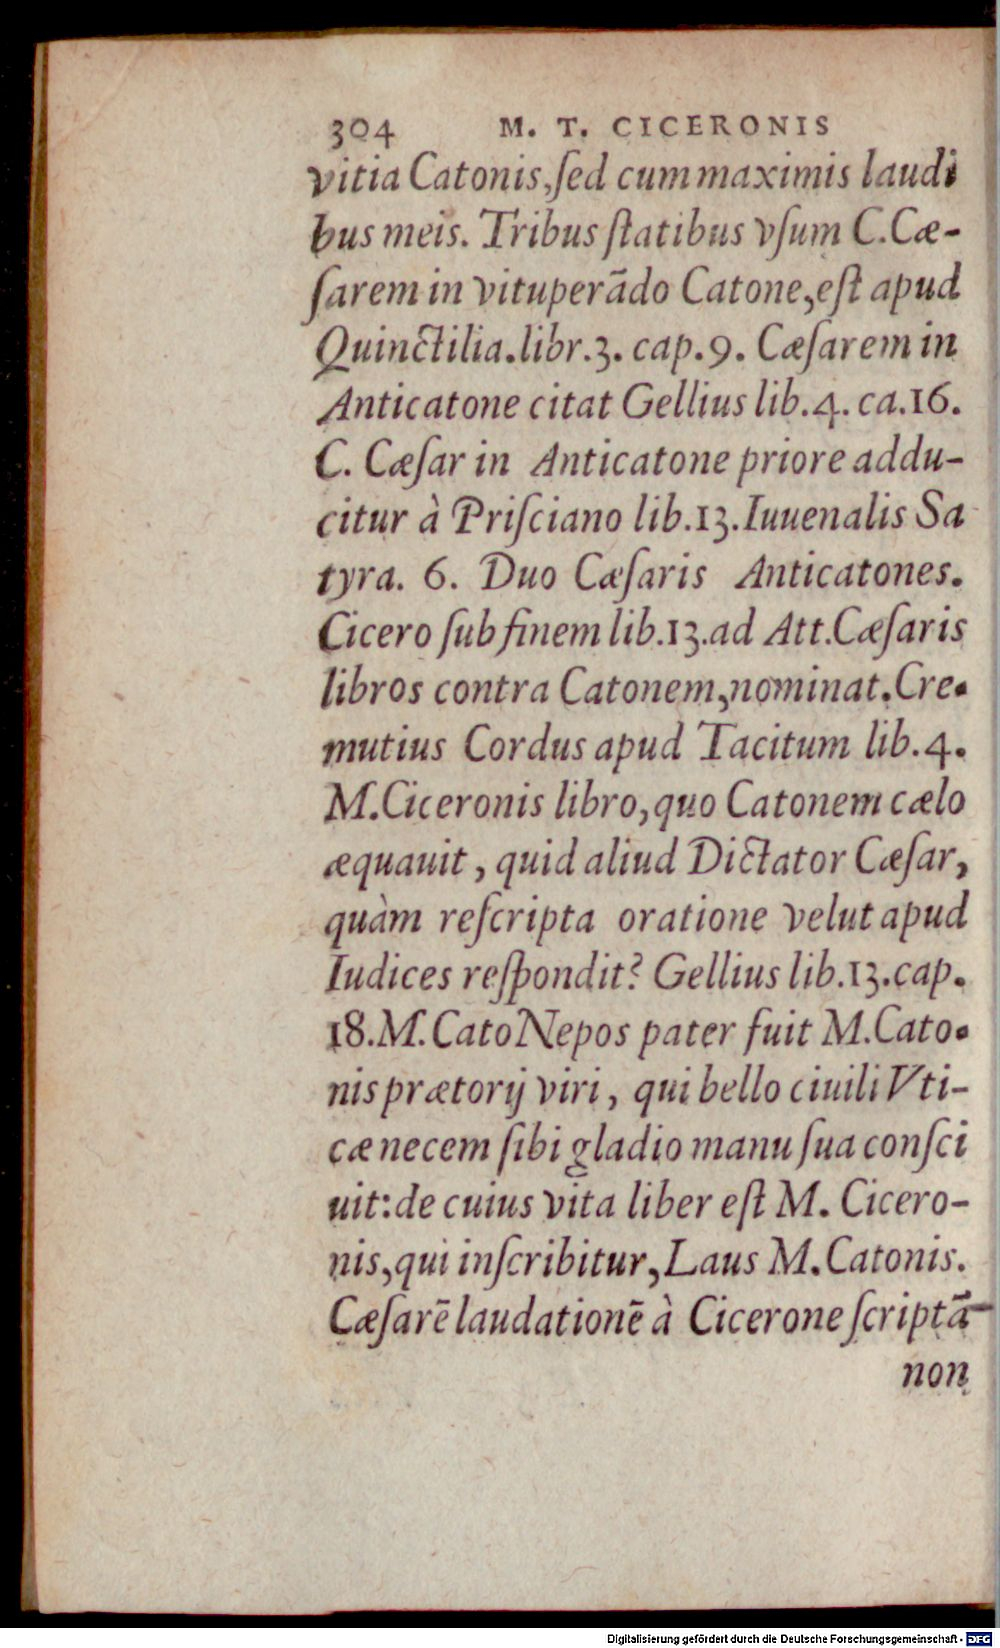 304 M. T. CICERONIS
vitia Catonis, ſed cum maximis laudi
bus meis. Tribus ſtatibus vſum C. Cæ-
ſarem in vituperādo Catone, eſt apud
Quinctilia. libr. 3. cap. 9. Cæſarem in
Anticatone citat Gellius lib. 4. ca. 16.
C. Cæſar in Anticatone priore addu-
citur à Priſciano lib. 13. Iuuenalis Sa
tyra. 6. Duo Cæſaris Anticatones.
Cicero ſub finem lib. 13. ad Att. Cæſaris
libros contra Catonem, nominat. Cre-
mutius Cordus apud Tacitum lib. 4.
M. Ciceronis libro, quo Catonem cælo
æquauit, quid aliud Dictator Cæſar,
quàm reſcripta oratione velut apud
Iudices reſpondit? Gellius lib. 13. cap.
18. M. Cato Nepos pater fuit M. Cato-
nis prætorij viri, qui bello ciuili Vti-
cæ necem ſibi gladio manu ſua conſci
uit: de cuius vita liber eſt M. Cicero-
nis, qui inſcribitur, Laus M. Catonis.
Cæſarē laudationē à Cicerone ſcriptā
non
Digitalisierung gefördert durch die Deutsche Forschungsgemeinschaft - DFG